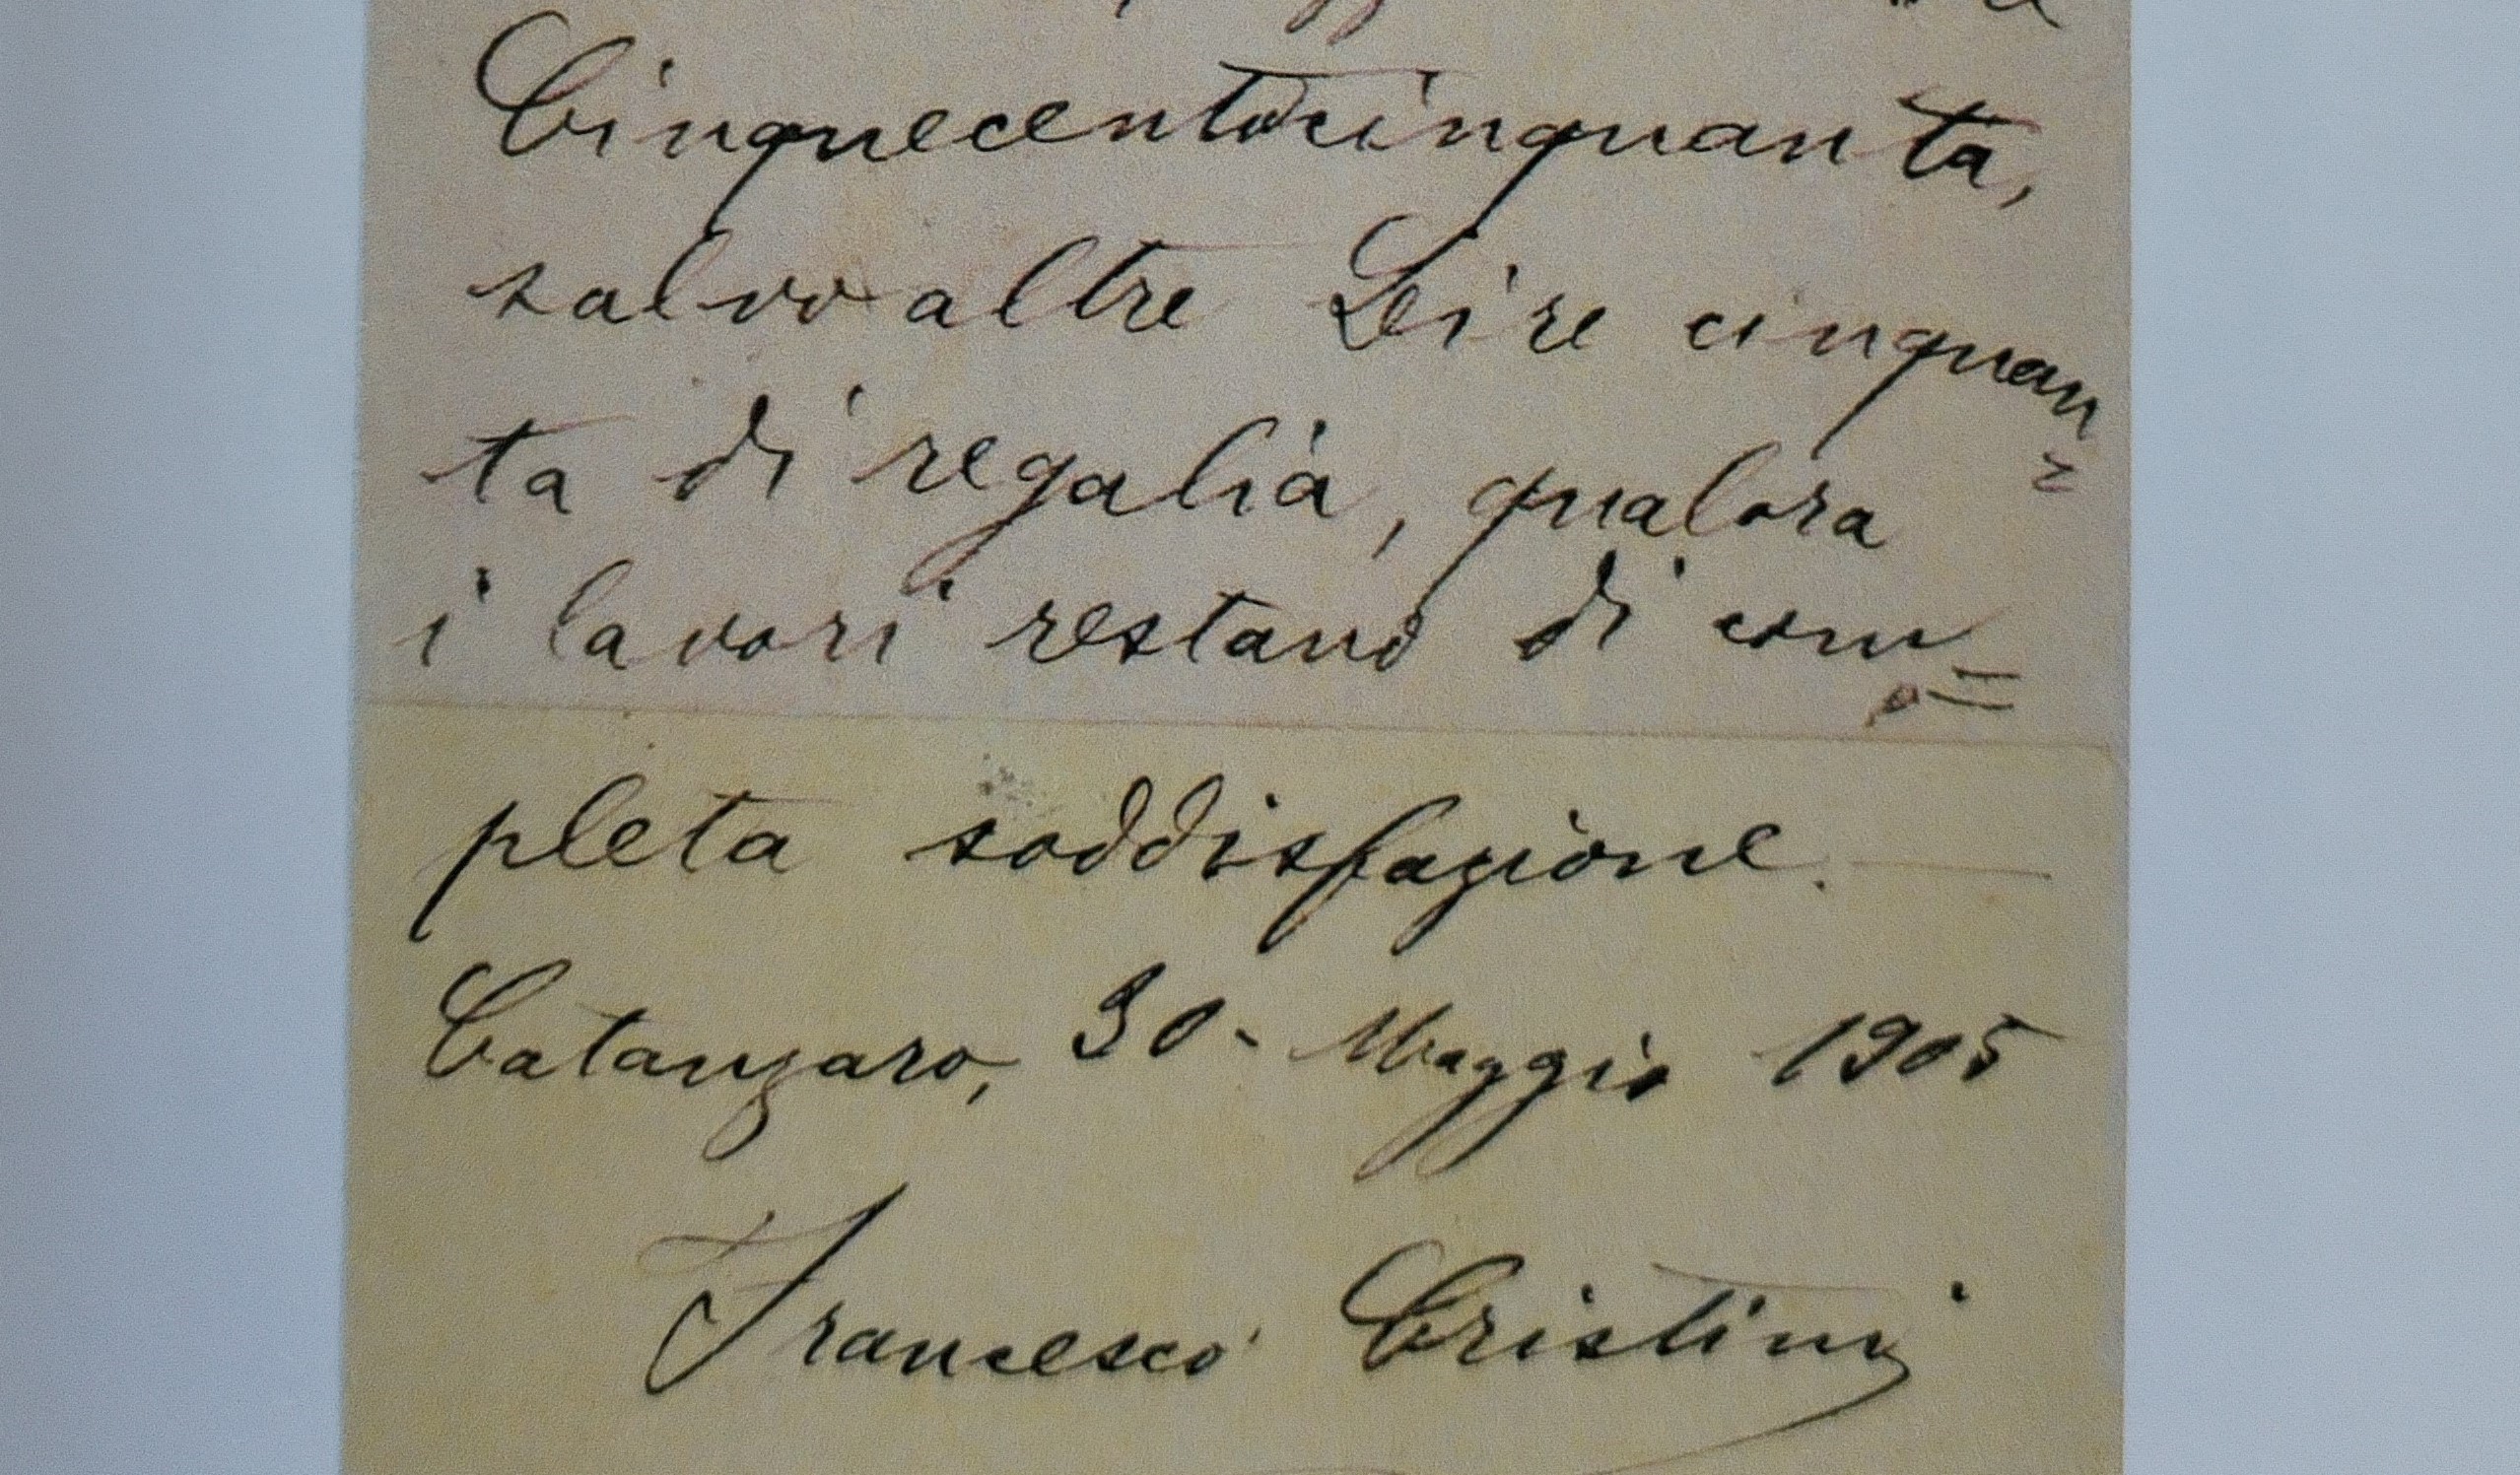 Cinquecentocinquanta,
salvo altre Lire cinquan=
ta di regalia, qualora
i lavori restano di com=
pleta soddisfazione.
Catanzaro, 30 - Maggio 1905
Francesco Cristini